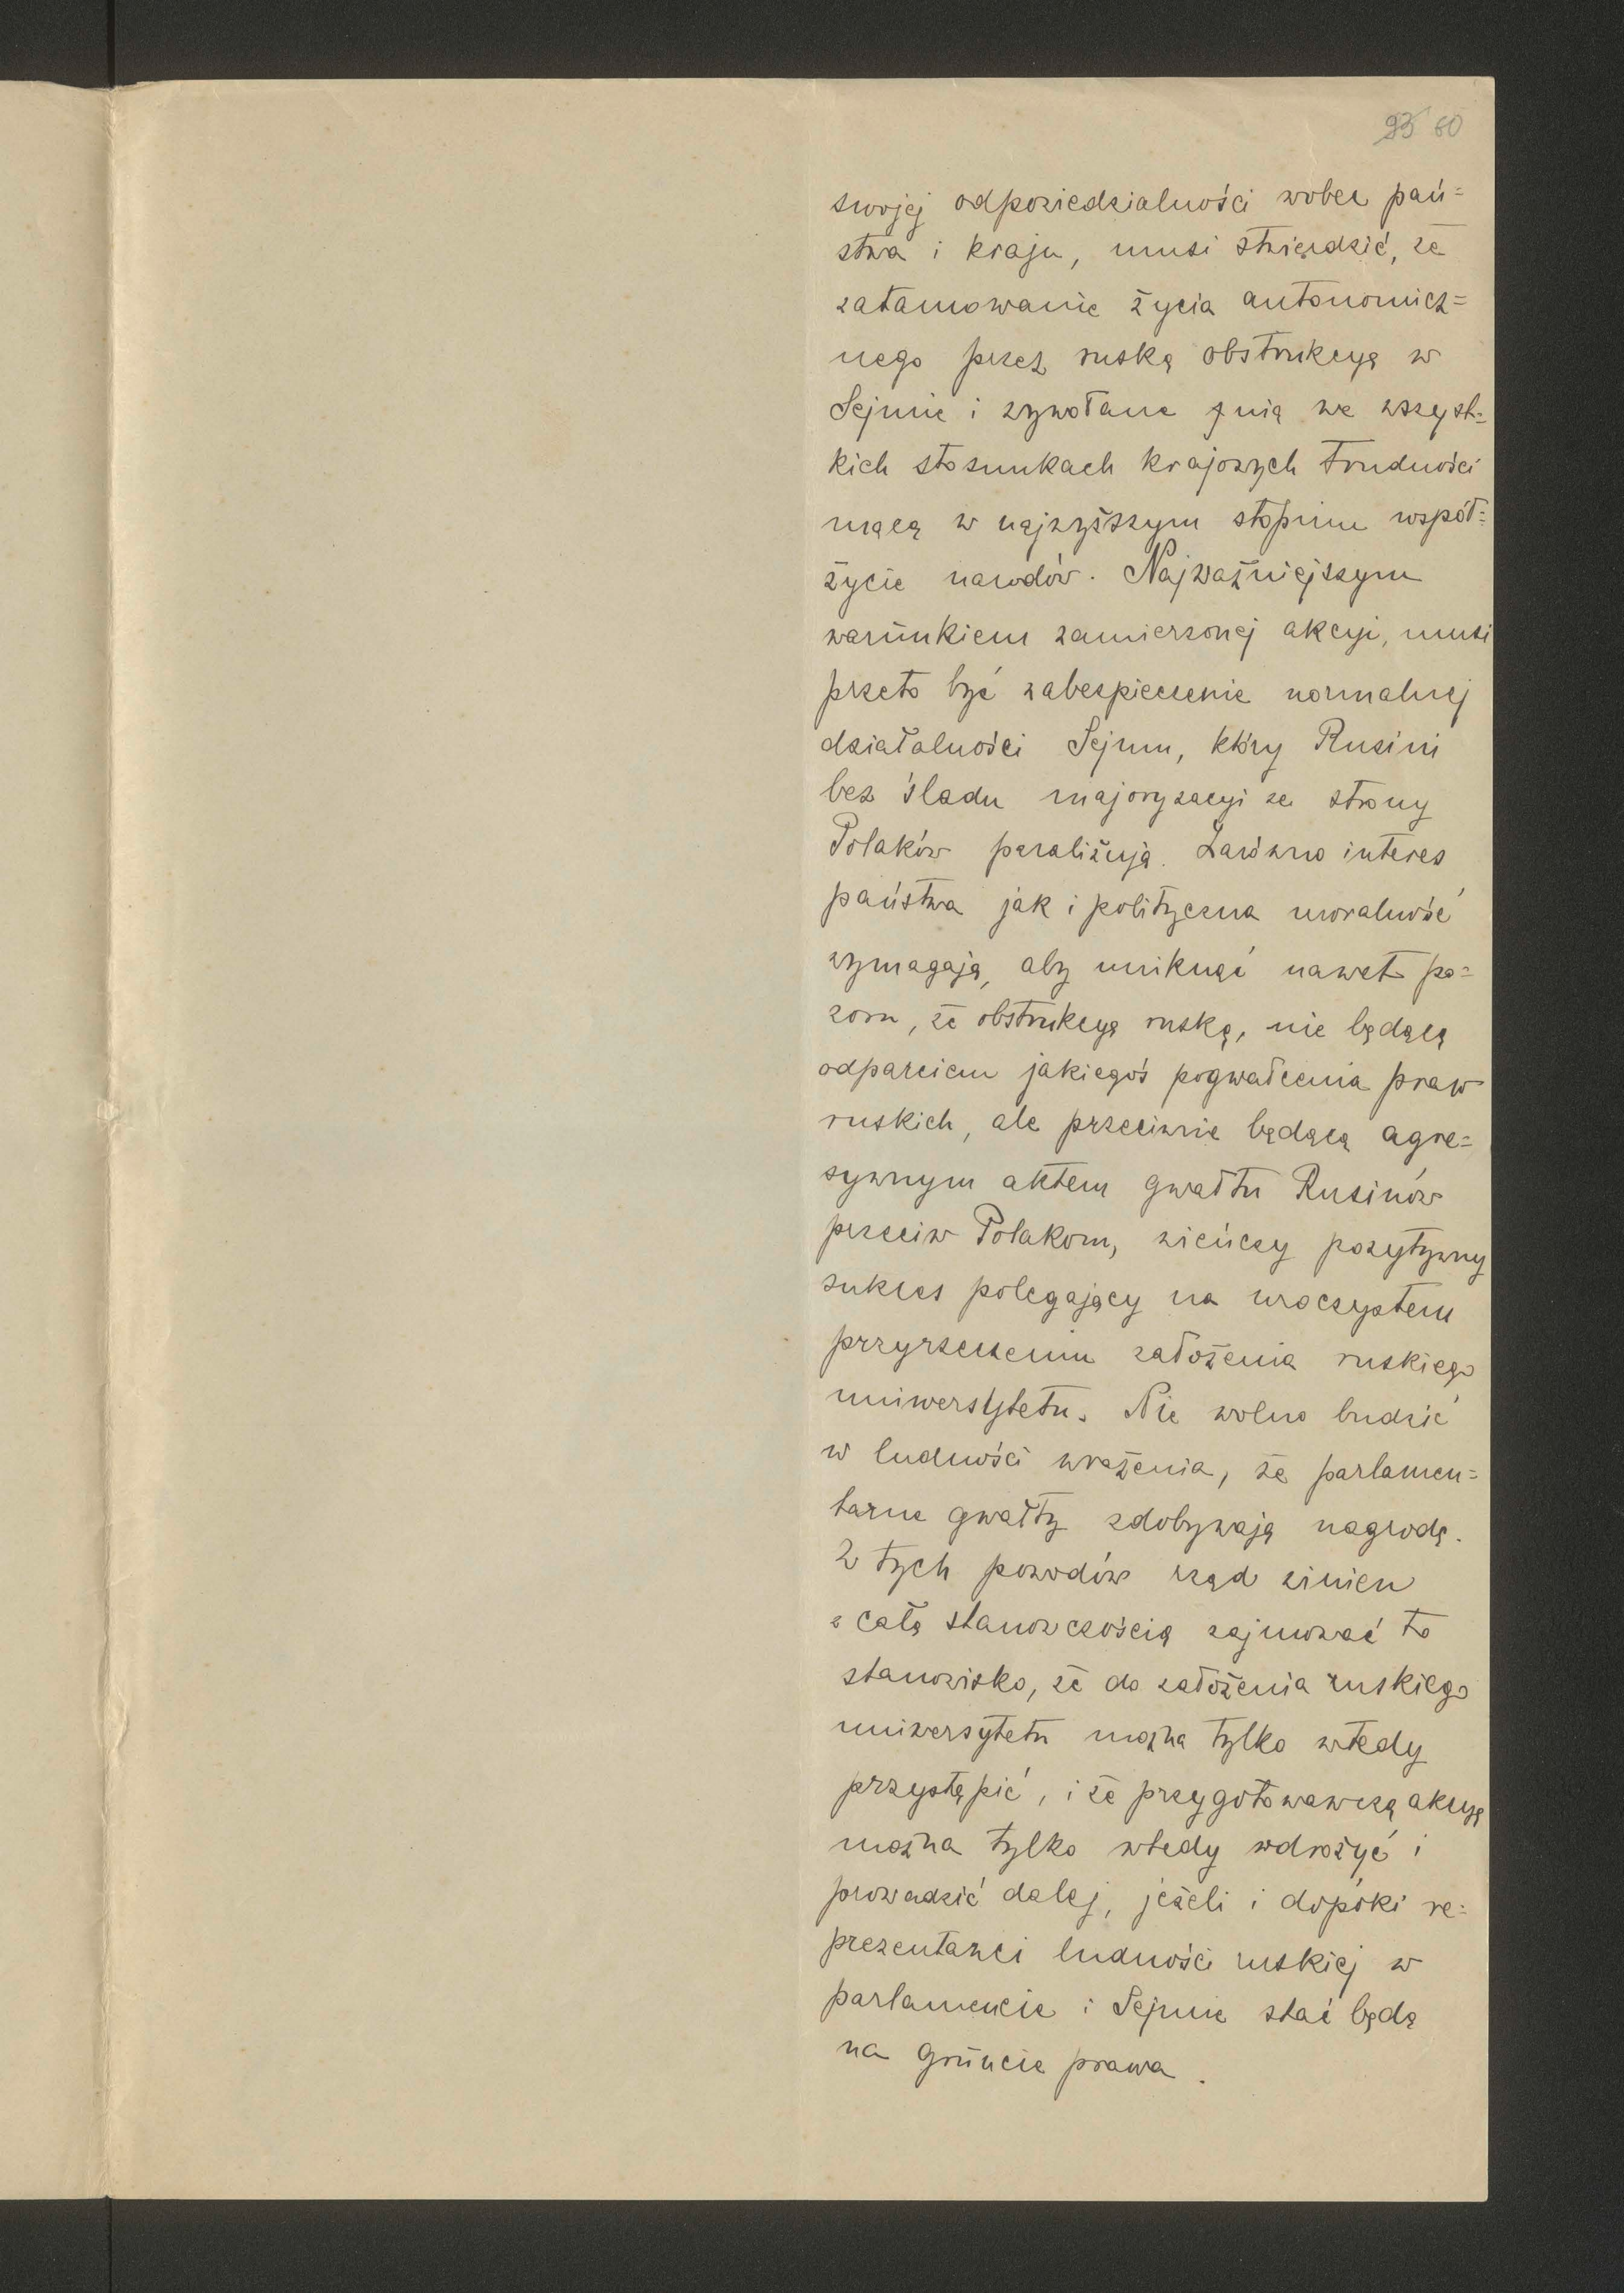 93 60
swojej odpowiedzialności wobec pań=
stwa i kraju, musi stwierdzić, że
zatamowanie życia autonomicz=
nego przez ruską obstrukcyą w
Sejmie i wywołane nią we wszyst=
kich stosunkach krajowych trudności
mącą w najwyższym stopniu współ=
życie narodów. Najważniejszym
warunkiem zamierzonej akcyi, musi
przeto być zabezpieczenie normalnej
działalności Sejmu, który Rusini
bez śladu majoryzacyi ze strony
Polaków paraliżują. Zarówno interes
państwa jak i polityczna moralność
wymagają, aby uniknąć nawet po=
zoru, że obstrukcyą ruską, nie będącą
odparciem jakiegoś pogwałcenia praw
ruskich, ale przeciwnie będącą agre=
sywnym aktem gwałtu Rusinów
przeciw Polakom, wieńczy pozytywny
sukces polegający na uroczystem
przyrzeczeniu założenia ruskiego
uniwersytetu. Nie wolno budzić
w ludności wrażenia, że parlamen=
tarne gwałty zdobywają nagrodę.
Z tych powodów rząd winien
z całą stanowczością zajmować to
stanowisko, że do założenia ruskiego
uniwersytetu można tylko wtedy
przystąpić, i że przygotowawczą akcyę
można tylko wtedy wdrożyć i
prowadzić dalej, jeżeli i dopóki re=
prezentanci ludności ruskiej w
parlamencie i Sejmie stać będą
na gruncie prawa.